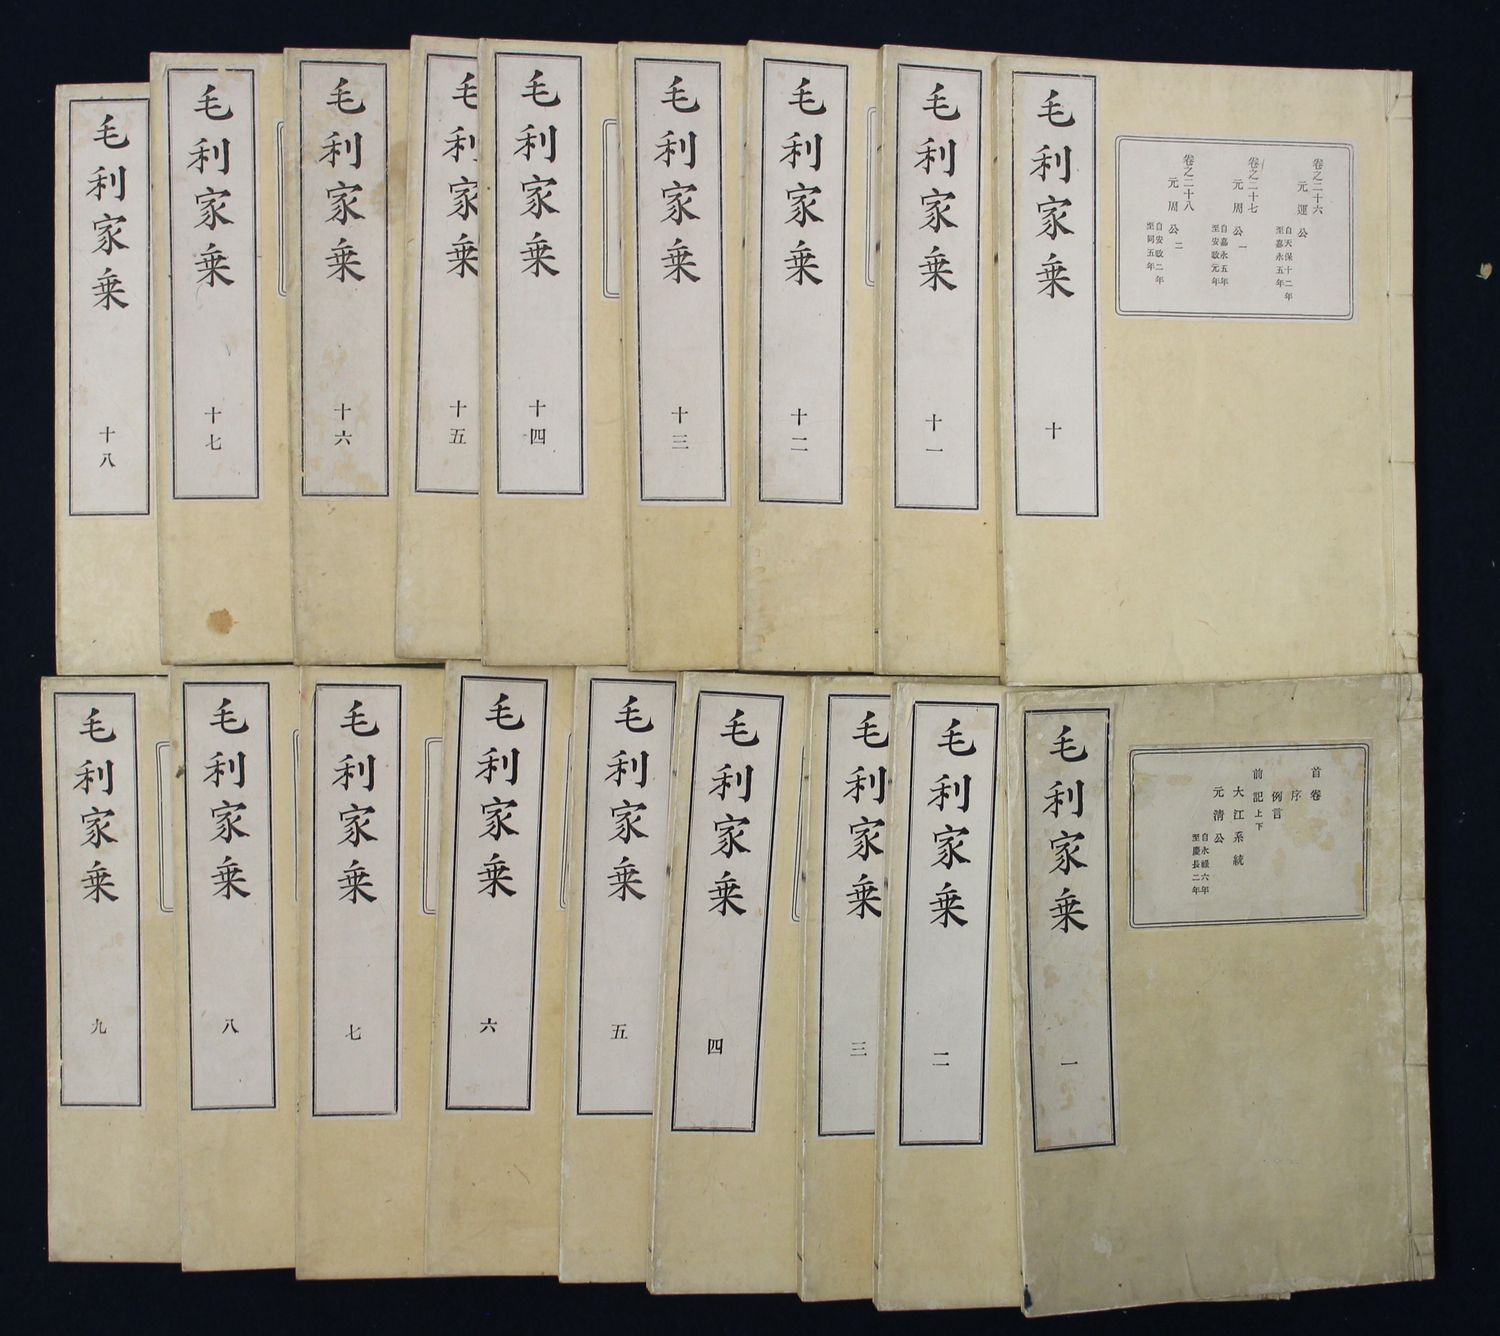 毛利家乗 十
卷之二十六
元運公 自天保十二年 至嘉永五年
卷之二十七
元周公一 自嘉永五年 至安政元年
卷之二十八
元周公二 自安政二年 至同五年
毛利家乗 十一
毛利家乗 十二
毛利家乗 十三
毛利家乗 十四
毛利家乗 十五
毛利家乗 十六
毛利家乗 十七
毛利家乗 十八
毛利家乗 一
首卷
序
例言
前記上下
大江系統
元清公 自永祿六年 至慶長二年
毛利家乗 二
毛利家乗 三
毛利家乗 四
毛利家乗 五
毛利家乗 六
毛利家乗 七
毛利家乗 八
毛利家乗 九